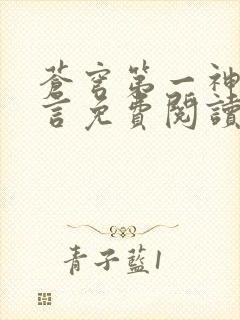 蒼穹第一神
言免費閱讀
青子藍1